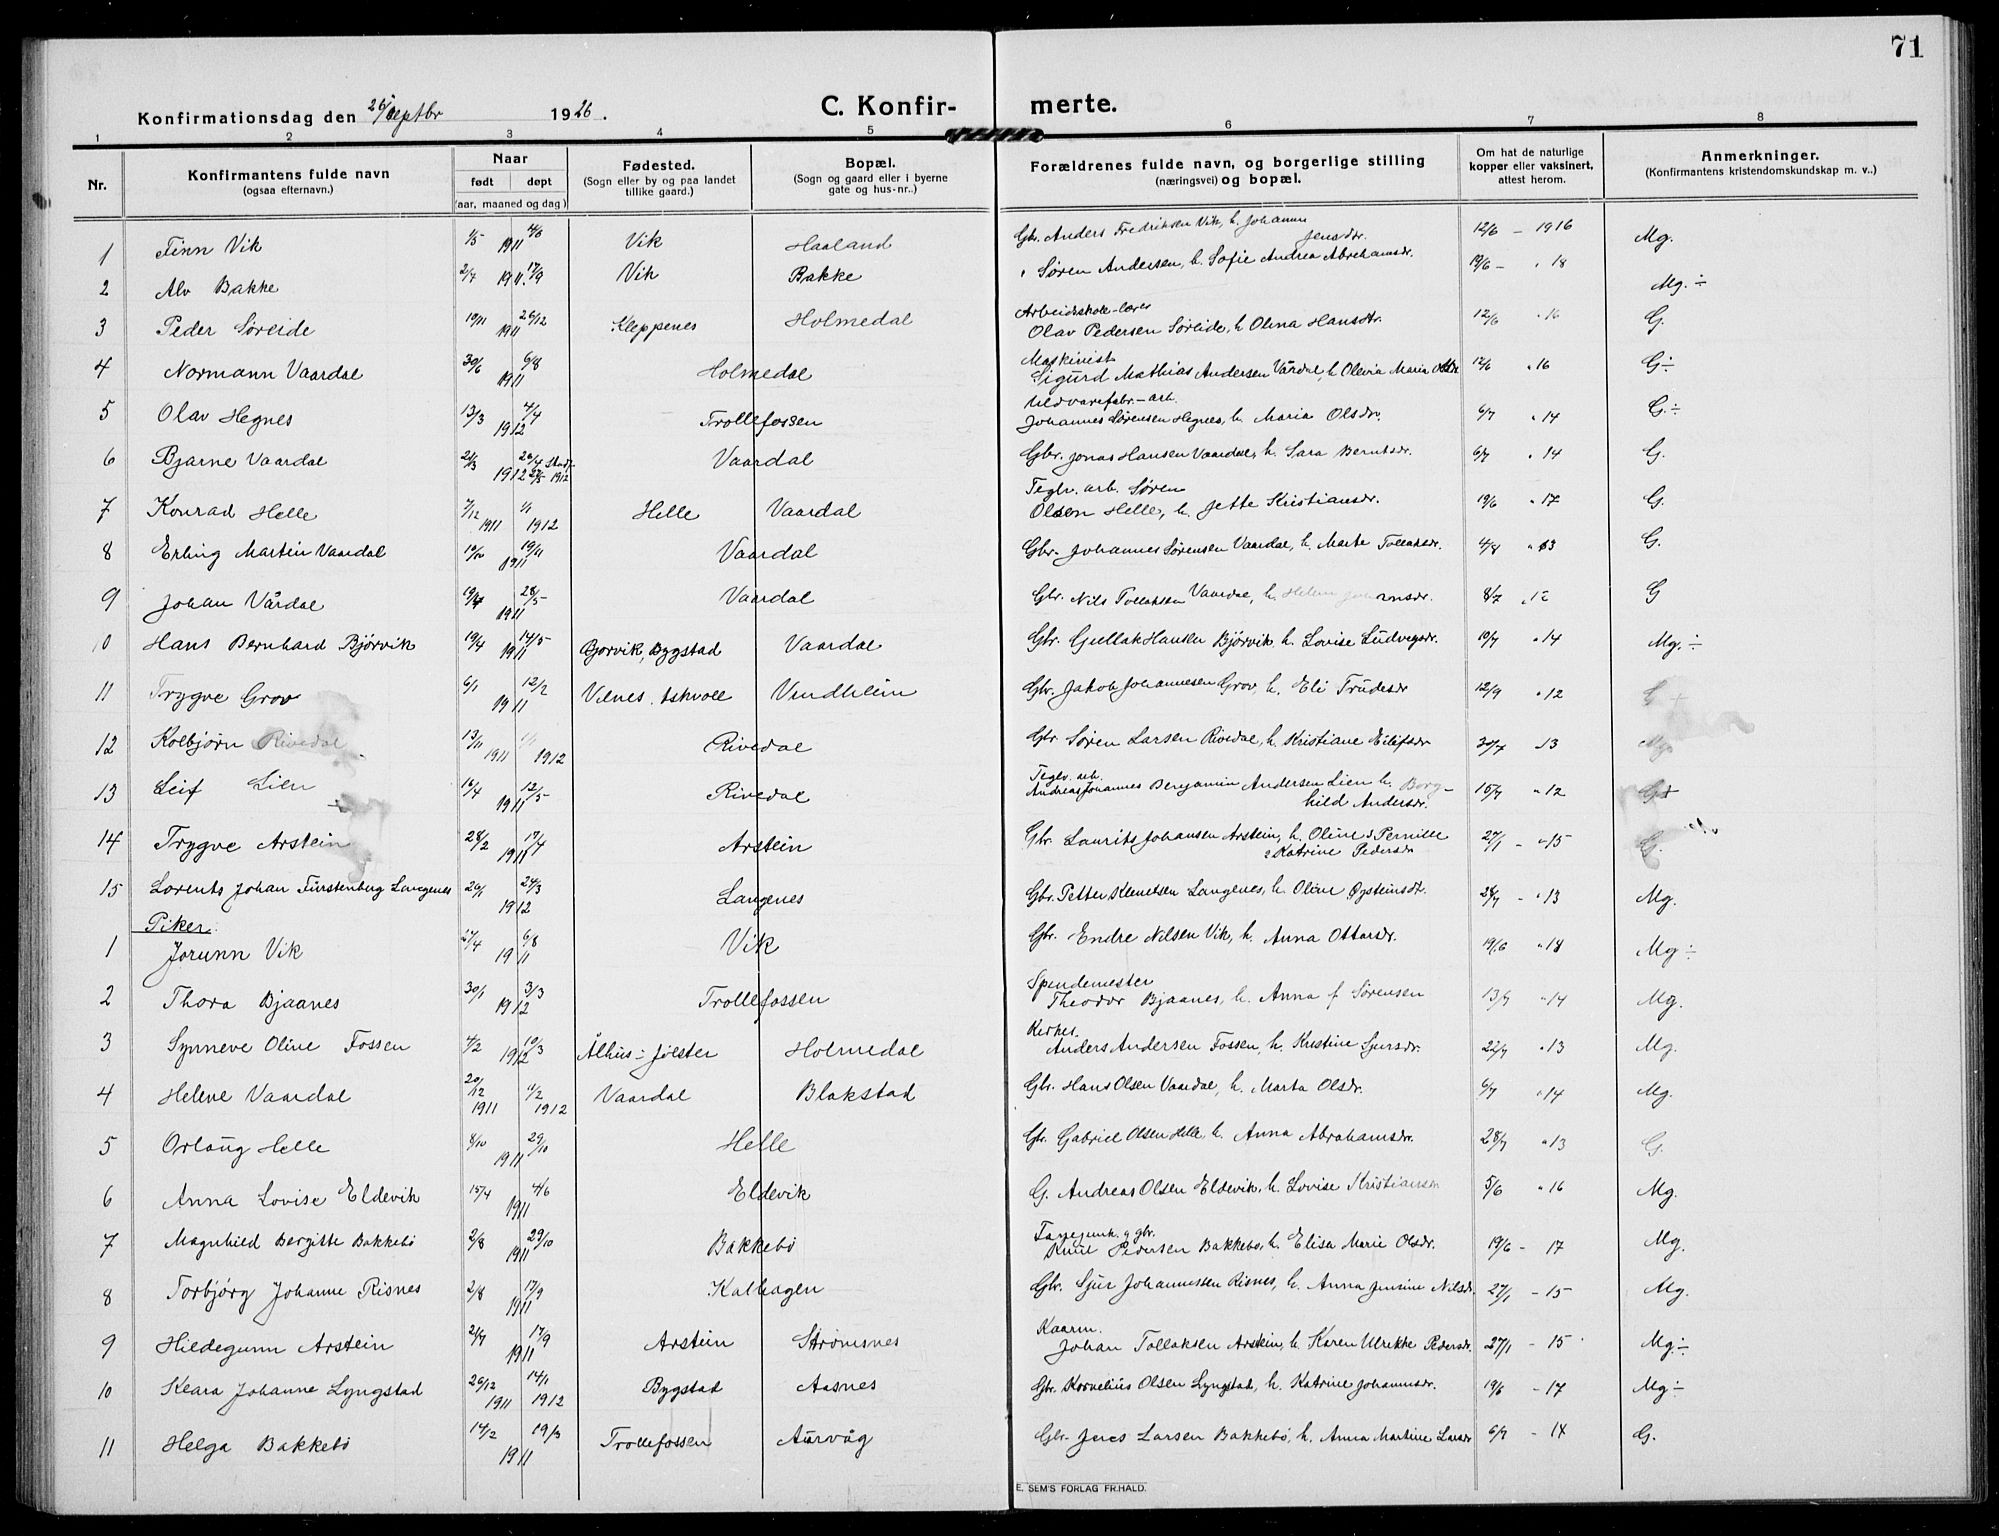 71
Konfirmationsdag den 26/ septbr 1926.
C. Konfirmerte.
1 2 3 4 5 6 7 8
Nr.
Konfirmantens fulde navn
(ogsaa efternavn.)
Naar
født døpt
(aar, maaned og dag)
Fødested.
(Sogn eller by og paa landet
tillike gaard.)
Bopæl.
(Sogn og gaard eller i byerne
gate og hus-nr.)
Forældrenes fulde navn, og borgerlige stilling
(næringsvei) og bopæl.
Om hat de naturlige
kopper eller vaksinert,
attest herom.
Anmerkninger.
(Konfirmantens kristendomskundskap m. v..)
1 Finn Vik 1/5 1911 4/6 Vik Haaland Gbr. Anders Fredriksen Vik, h. Johanne Jensdr. 12/6 - 1916 Mg.
2 Alv Bakke 2/7 1911 17/9 Vik Bakke " Søren Andersen, h. Sofie Andrea Abrahamsdr. 19/6 - " 18 Mg. ÷
3 Peder Søreide 19/11 1911 26/12 Kleppenes Holmedal Arbeidsskole-lærer Olav Pedersen Søreide, h. Olina Hansdr. 12/6 " 16 G.
4 Normann Vaardal 30/6 1911 6/8 Holmedal Maskinist Sigurd Mathias Andersen Vårdal, h. Olevia Maria Olsdr. 12/6 " 16 G ÷
5 Olav Hegnes 13/3 1912 4/4 Trollefossen Uldvarefabr.-arb. Johannes Sørensen Hegnes, h. Maria Olsdr. 6/7 " 14 G. ÷
6 Bjarne Vaardal 21/3 1912 26/4 Stadf. 27/5 1912 Vaardal Gbr. Jonas Hansen Vaardal, h. Sara Berntsdr. 6/7 " 14 G.
7 Konrad Helle 7/12 1911 1/1 1912 Helle Vaardal Teglv. arb. Søren Olsen Helle, h. Jette Kristiansdr. 19/6 " 17 G.
8 Erling Martin Vaardal 10/10 1911 19/11 Vaardal Gbr. Johannes Sørensen Vaardal, h. Marte Tollaksdr. 4/8 " 13 G.
9 Johan Vårdal 19/4 1911 28/5 Vaardal Gbr. Nils Tollaksen Vaardal, h. Helene Johansdr. 8/7 " 12 G
10 Hans Bernhard Bjørvik 19/4 1911 14/5 Bjorvik, Bygstad Vaardal Gbr. Gullak Hansen Bjørvik, h. Lovise Ludvegsdr. 10/7 " 14 Mg. ÷
11 Trygve Grov 6/1 1911 12/2 Vilnes, Askvoll Vindheim Gbr. Jakob Johannesen Grov, h. Eli Trudesdr 12/9 " 12 G +
12 Kolbjørn Rivedal 13/11 1911 1/1 1912 Rivedal Gbr. Søren Larsen Rivedal, h. Kristiane Eilifsdr 30/7 " 13 Mg.
13 Leif Lien 16/4 1911 12/5 Rivedal Teglv. arb. Andreas Johannes Benjamin Andersen Lien h. Borghild Andersdr. 15/7 " 12 G+
14 Trygve Arstein 28/2 1911 17/4 Arstein Gbr. Laurits Johansen Arstein, h. Oline Pernille Katrine Pedersdr 27/1 - " 15 G.
15 Lorents Johan Fürstenberg Langenes 26/1 1912 24/3 Langenes Gbr. Petter Klemetsen Langenes, h. Oline Øysteinsdt. 28/7 - " 13 Mg.
Piker.
1 Jorunn Vik 27/4 1911 6/8 Vik Gbr. Endre Nilsen Vik, h. Anna Ottarsdr. 19/6 " 18 Mg ÷
2 Thora Bjaanes 30/1 1912 3/3 Trollefossen Spindemester Theodor Bjaanes, h. Anna f. Sørensen 13/7 " 14 Mg.
3 Synneve Oline Fossen 4/2 1912 10/3 Ålhus - Jølster Holmedal Kirkes. Anders Andersen Fossen, h. Kristine Sjursdr. 22/7 " 13 Mg.
4 Helene Vaardal 20/12 1911 11/2 1912 Vaardal Blakstad Gbr. Hans Olsen Vaardal, h. Marta Olsdr. 6/7 " 14 Mg.
5 Orlaug Helle 8/10 1911 29/10 Helle Gbr. Gabriel Olsen Helle, h. Anna Abrahamsdr. 28/7 " 13 G.
6 Anna Lovise Eldevik 15/4 1911 4/6 Eldevik G. Andreas Olsen Eldevik, h. Lovise Kristiansdr 5/6 " 16 Mg.
7 Magnhild Bergitte Bakkebø 2/8 1911 29/10 Bakkebø gbr. Knut Pedersen Bakkebø, h. Elisa Marie Olsdr. 19/6 - 17 Mg.
8 Torbjørg Johanne Risnes 2/8 1911 17/9 Kalhagen Gbr. Sjur Johannessen Risnes, h. Anna Jensine Nilsdr. 27/1 - 15 Mg.
9 Hildegunn Arstein 21/7 1911 17/9 Arstein Strömsnes Kaarm. Johan Tollaksen Arstein, h. Karen Ulrikke Pedersdr. 27/1 - 15 Mg. ÷
10 Klara Johanne Lyngstad 26/12 1911 14/1 1912 Bygstad Aasnes Gbr. Kornelius Olsen Lyngstad, h. Katrine Johannsdr. 19/6 - 17 Mg ÷
11 Helga Bakkebö 14/2 1911 19/3 Trollefossen Aurvåg Gbr. Jens Larsen Bakkebø, h. Anna Martine Larsdr 6/7 - 14 G.
E. SEM'S FORLAG FR.HALD.